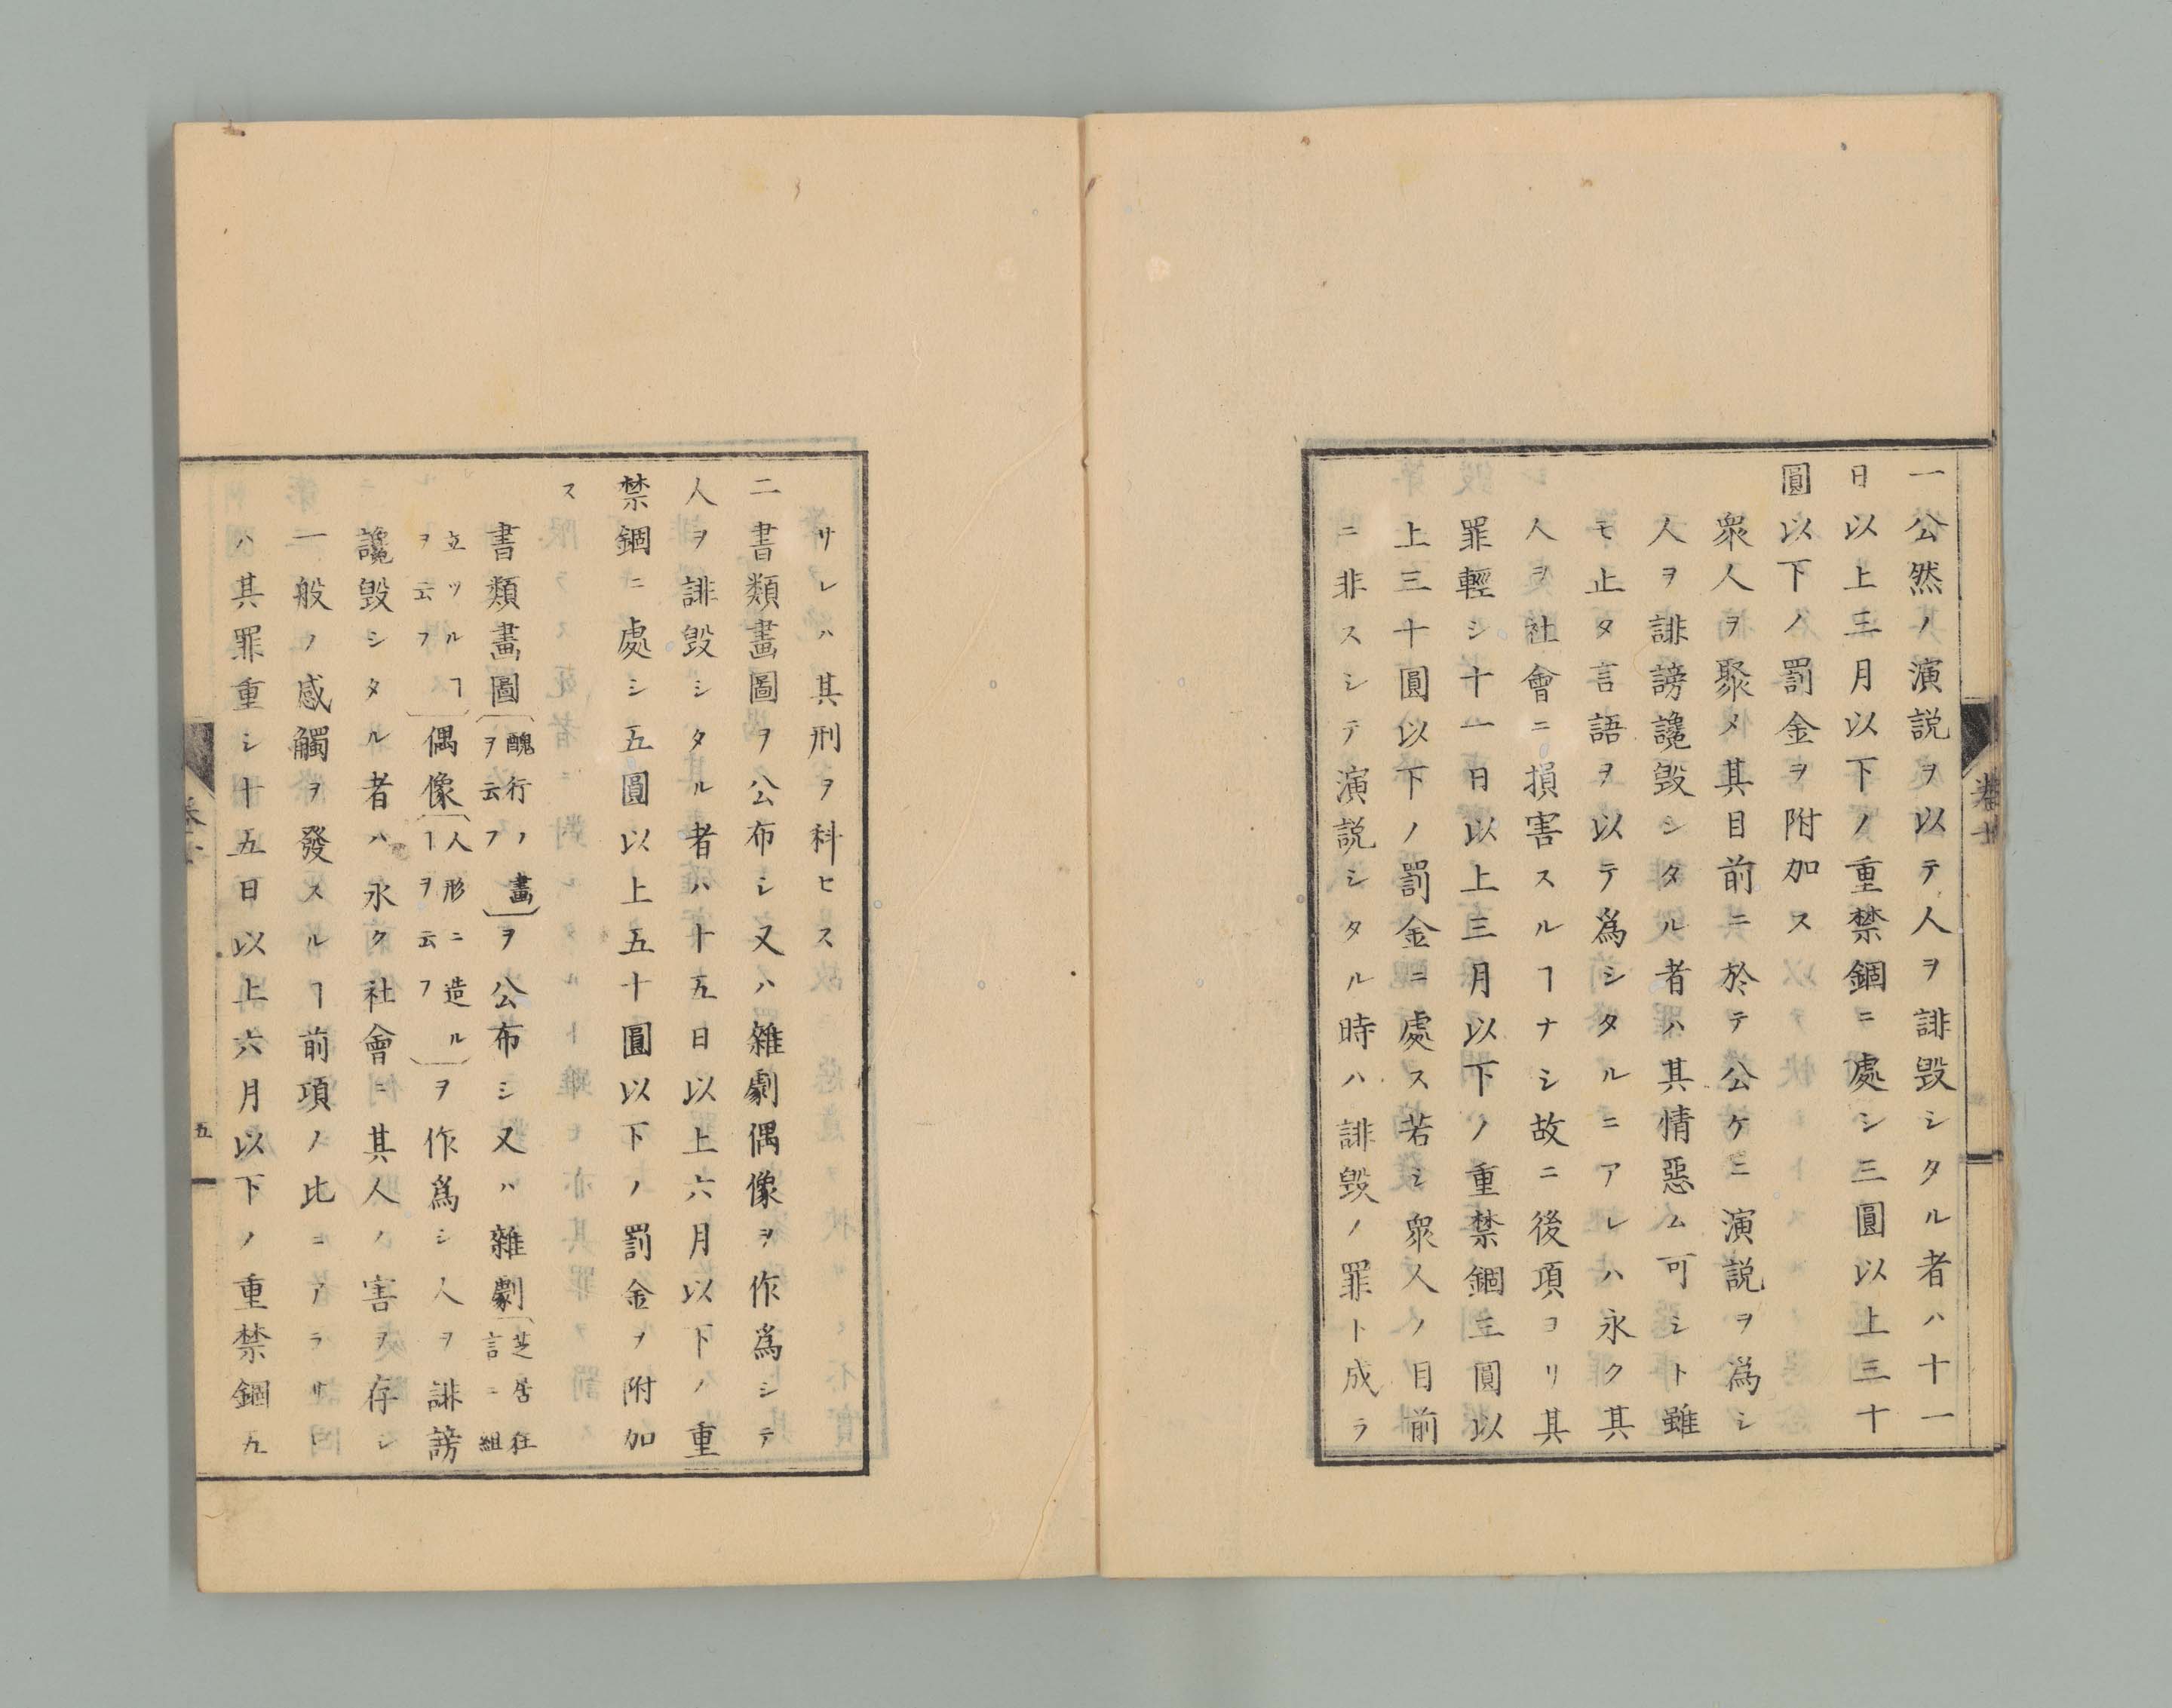 一公然ノ演説ヲ以テ人ヲ誹毀シタル者ハ十一
日以上三月以下ノ重禁錮ニ處シ三圓以上三十
圓以下ノ罰金ヲ附加ス
衆人ヲ聚メ其目前ニ於テ公ケニ演説ヲ為シ
人ヲ誹謗讒毀シタル者ハ其情惡ム可シト雖
モ止タ言語ヲ以テ爲シタルニアレハ永ク其
人ヲ社會ニ損害スルヿナシ故ニ後項ヨリ其
罪輕シ十一日以上三月以下ノ重禁錮三圓以
上三十圓以下ノ罰金ニ處ス若シ衆人ノ目前
ニ非スシテ演説シタル時ハ誹毀ノ罪ト成ラ
サレハ其刑ヲ科セス
二書類畫圖ヲ公布シ又ハ雜劇偶像ヲ作爲シテ
人ヲ誹毀シタル者ハ十五日以上六月以下ノ重
禁錮ニ處シ五圓以上五十圓以下ノ罰金ヲ附加
ス
書類畫圖(醜行ノ畫ヲ云フ)ヲ公布シ又ハ雜劇(芝居狂言ニ組
立ツルヿヲ云フ)偶像(人形ニ造ルヿヲ云フ)ヲ作爲シ人ヲ誹謗
讒毀シタル者ハ永ク社會ニ其人ノ害ヲ存シ
一般ノ感觸ヲ發スルヿ前項ノ比ニアラサレ
ハ其罪重シ十五日以上六月以下ノ重禁錮五
五